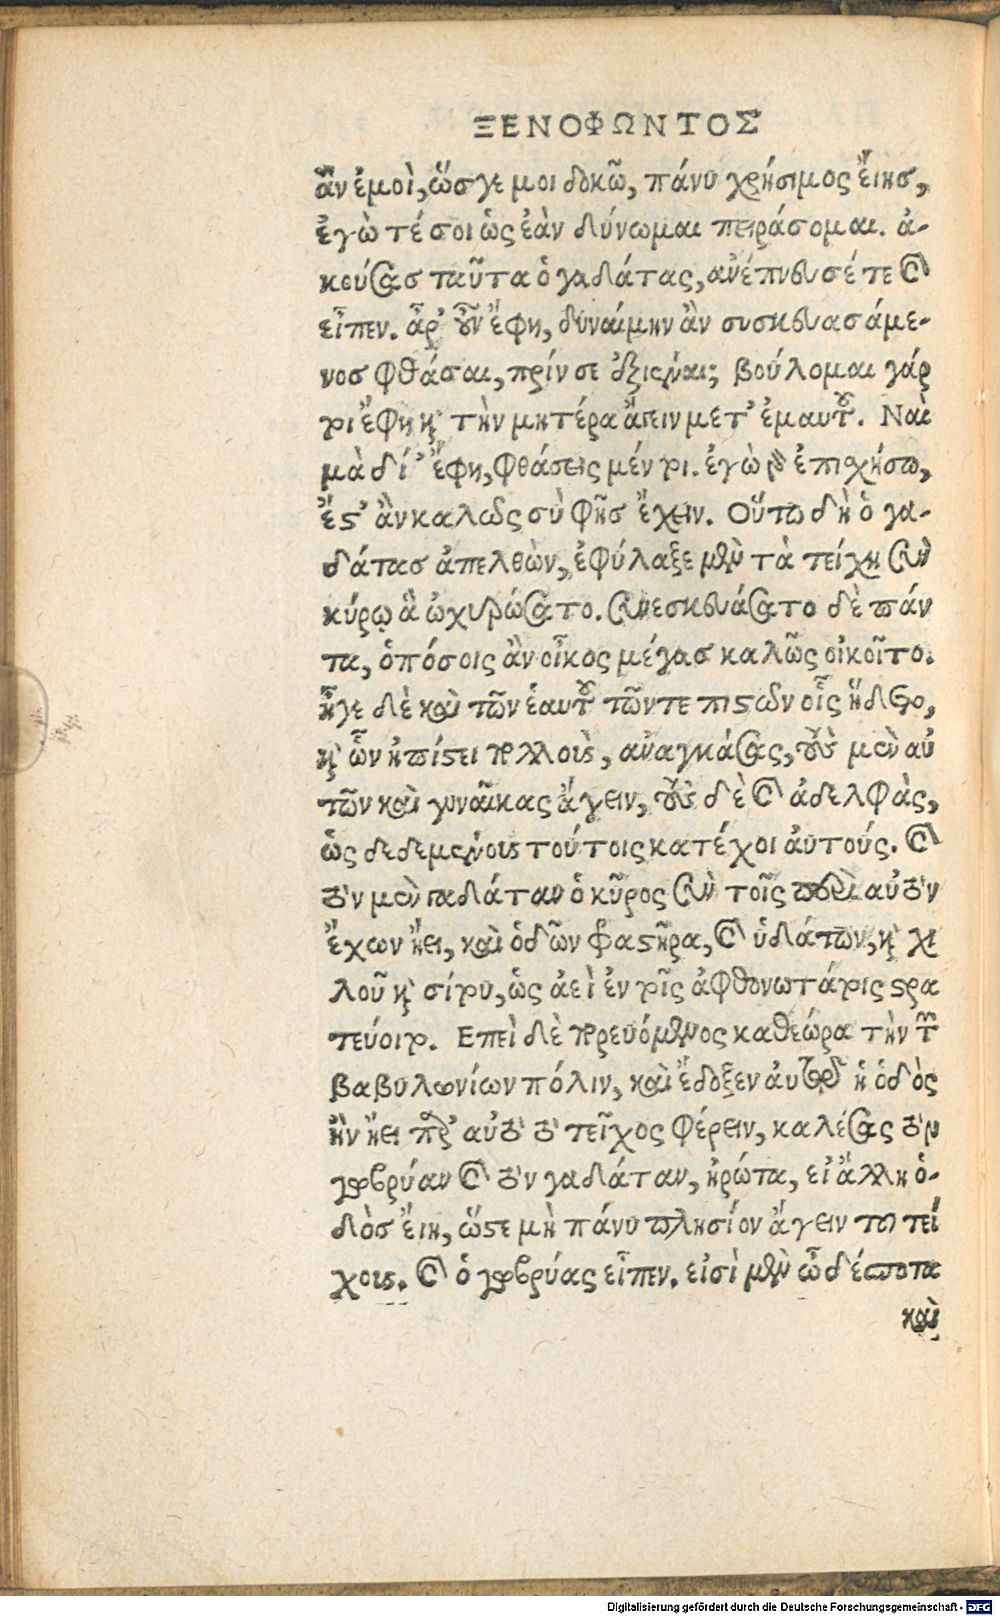 ΞΕΝΟΦΩΝΤΟΣ
ἂν ἐμοὶ, ὥσγε μοι δοκῶ, πάνυ χρήσιμος ἔιης,
ἐγὼ τέ σοι ὡς ἐὰν δύνωμαι πειράσομαι. ἀ-
κούσας ταῦτα ὁ γαδάτας, ἀνέπνευσέ τε καὶ
εἶπεν. ἆρ' οὖν ἔφη, δυναίμην ἂν συσκευασάμε-
νος φθάσαι, πρίν σε ἐξιέναι; βούλομαι γάρ
τοι ἔφη καὶ τὴν μητέρα ἄγειν μετ' ἐμαυτοῦ. Ναὶ
μὰ δί' ἔφη, φθάσεις μέν τοι. ἐγὼ γὰρ ἐπισχήσω,
ἕστ' ἂν καλῶς σὺ φῇς ἔχειν. Οὕτω δὴ ὁ γα-
δάτας ἀπελθὼν, ἐφύλαξε μὲν τὰ τείχη σὺν
κύρῳ ἃ ὠχυρώσατο. συνεσκευάσατο δὲ πάν
τα, ὁπόσοις ἂν οἶκος μέγας καλῶς οἰκοῖτο.
ἦγε δὲ καὶ τῶν ἑαυτοῦ τῶντε πιστῶν οἷς ἥδετο,
καὶ ὧν ἠπίστει πολλοὺς, ἀναγκάσας, τοὺς μὲν αὐ
τῶν καὶ γυναῖκας ἄγειν, τοὺς δὲ καὶ ἀδελφὰς,
ὡς δεδεμένους τούτοις κατέχοι ἀυτούς. καὶ
τὸν μὲν γαδάταν ὁ κῦρος σὺν τοῖς περὶ αὐτὸν
ἔχων ἤει, καὶ ὁδῶν φραστῆρα, καὶ ὑδάτων, καὶ χι
λοῦ καὶ σίτου, ὡς ἀεὶ ἐν τοῖς ἀφθονωτάτοις στρα
τεύοιτο. Επεὶ δὲ πορευόμενος καθεώρα τὴν τῶν
βαβυλωνίων πόλιν, καὶ ἔδοξεν ἀυτῷ ἡ ὁδὸς
ἣν ἤει παρ' αὐτὸ τὸ τεῖχος φέρειν, καλέσας τὸν
γωβρύαν καὶ τὸν γαδάταν, ἠρώτα, εἰ ἄλλη ὁ-
δὸς ἔιη, ὥστε μὴ πάνυ πλησίον ἄγειν τοῦ τεί
χους. καὶ ὁ γωβρύας εἶπεν. εἰσὶ μὲν ὦ δέσποτα
καὶ
Digitalisierung gefördert durch die Deutsche Forschungsgemeinschaft - DFG